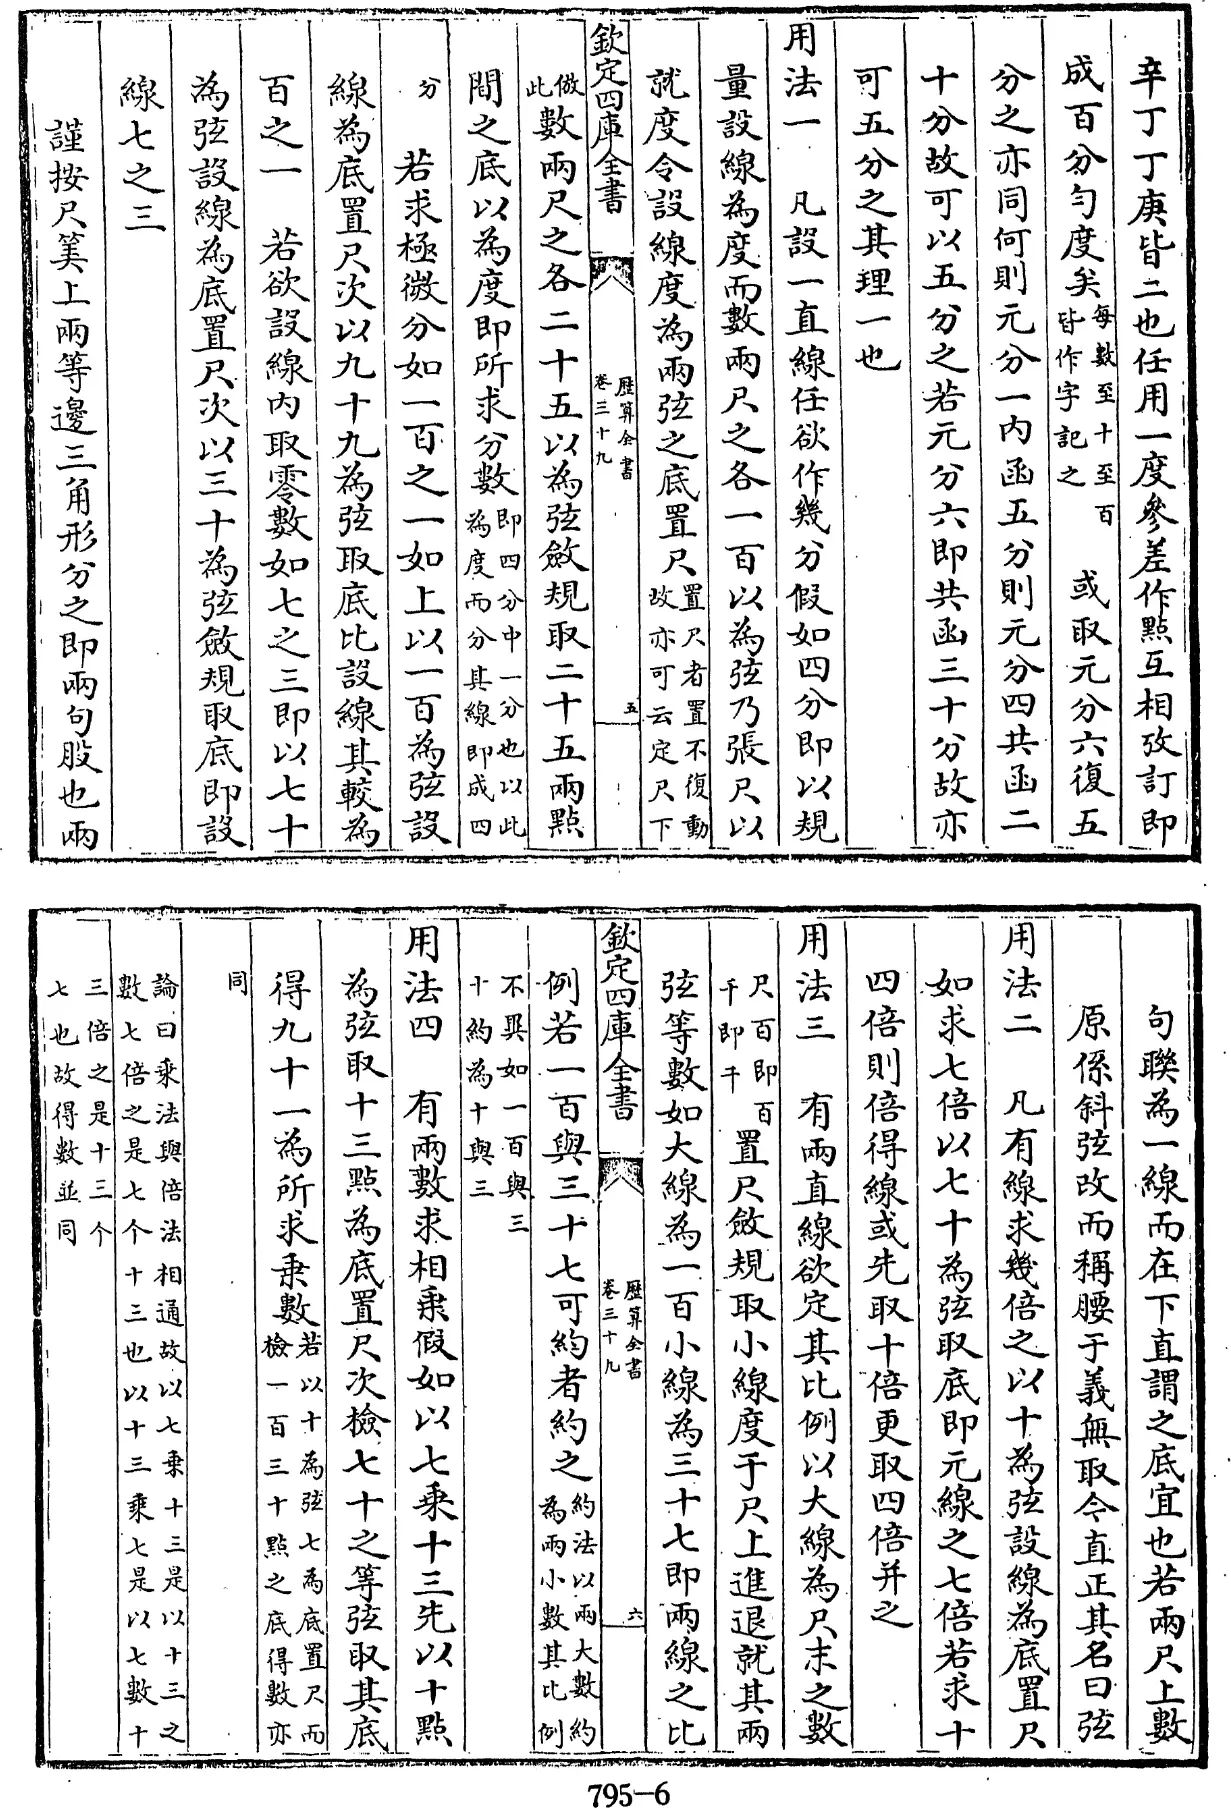 辛丁丁庚皆二也任用一度參差作點互相攷訂即
成百分勻度矣每數至十至百皆作字記之 或取元分六復五
分之亦同何則元分一內函五分則元分四共函二
十分故可以五分之若元分六即共函三十分故亦
可五分之其理一也
用法一 凡設一直線任欲作幾分假如四分即以規
量設線為度而數兩尺之各一百以為弦乃張尺以
就度令設線度為兩弦之底置尺置尺者置不復動故亦可云定尺下
倣此
欽定四庫全書
歷算全書
卷三十九
五
數兩尺之各二十五以為弦斂規取二十五兩點
間之底以為度即所求分數即四分中一分也以此為度而分其線即成四
分 若求極微分如一百之一如上以一百為弦設
線為底置尺次以九十九為弦取底比設線其較為
百之一 若欲設線內取零數如七之三即以七十
為弦設線為底置尺次以三十為弦斂規取底即設
線七之三
謹按尺筭上兩等邊三角形分之即兩句股也兩
句聯為一線而在下直謂之底宜也若兩尺上數
原係斜弦改而稱腰于義無取今直正其名曰弦
用法二 凡有線求幾倍之以十為弦設線為底置尺
如求七倍以七十為弦取底即元線之七倍若求十
四倍則倍得線或先取十倍更取四倍并之
用法三 有兩直線欲定其比例以大線為尺末之數
尺百即百千即千置尺斂規取小線度于尺上進退就其兩
弦等數如大線為一百小線為三十七即兩線之比
欽定四庫全書
歷算全書
卷三十九
六
例若一百與三十七可約者約之約法以兩大數約為兩小數其比例
不異如一百與三十約為十與三
用法四 有兩數求相乗假如以七乗十三先以十點
為弦取十三點為底置尺次檢七十之等弦取其底
得九十一為所求乗數若以十為弦七為底置尺而檢一百三十點之底得數亦
同
論曰乗法與倍法相通故以七乗十三是以十三之
數七倍之是七个十三也以十三乗七是以七數十
三倍之是十三个
七也故得數並同
795-6